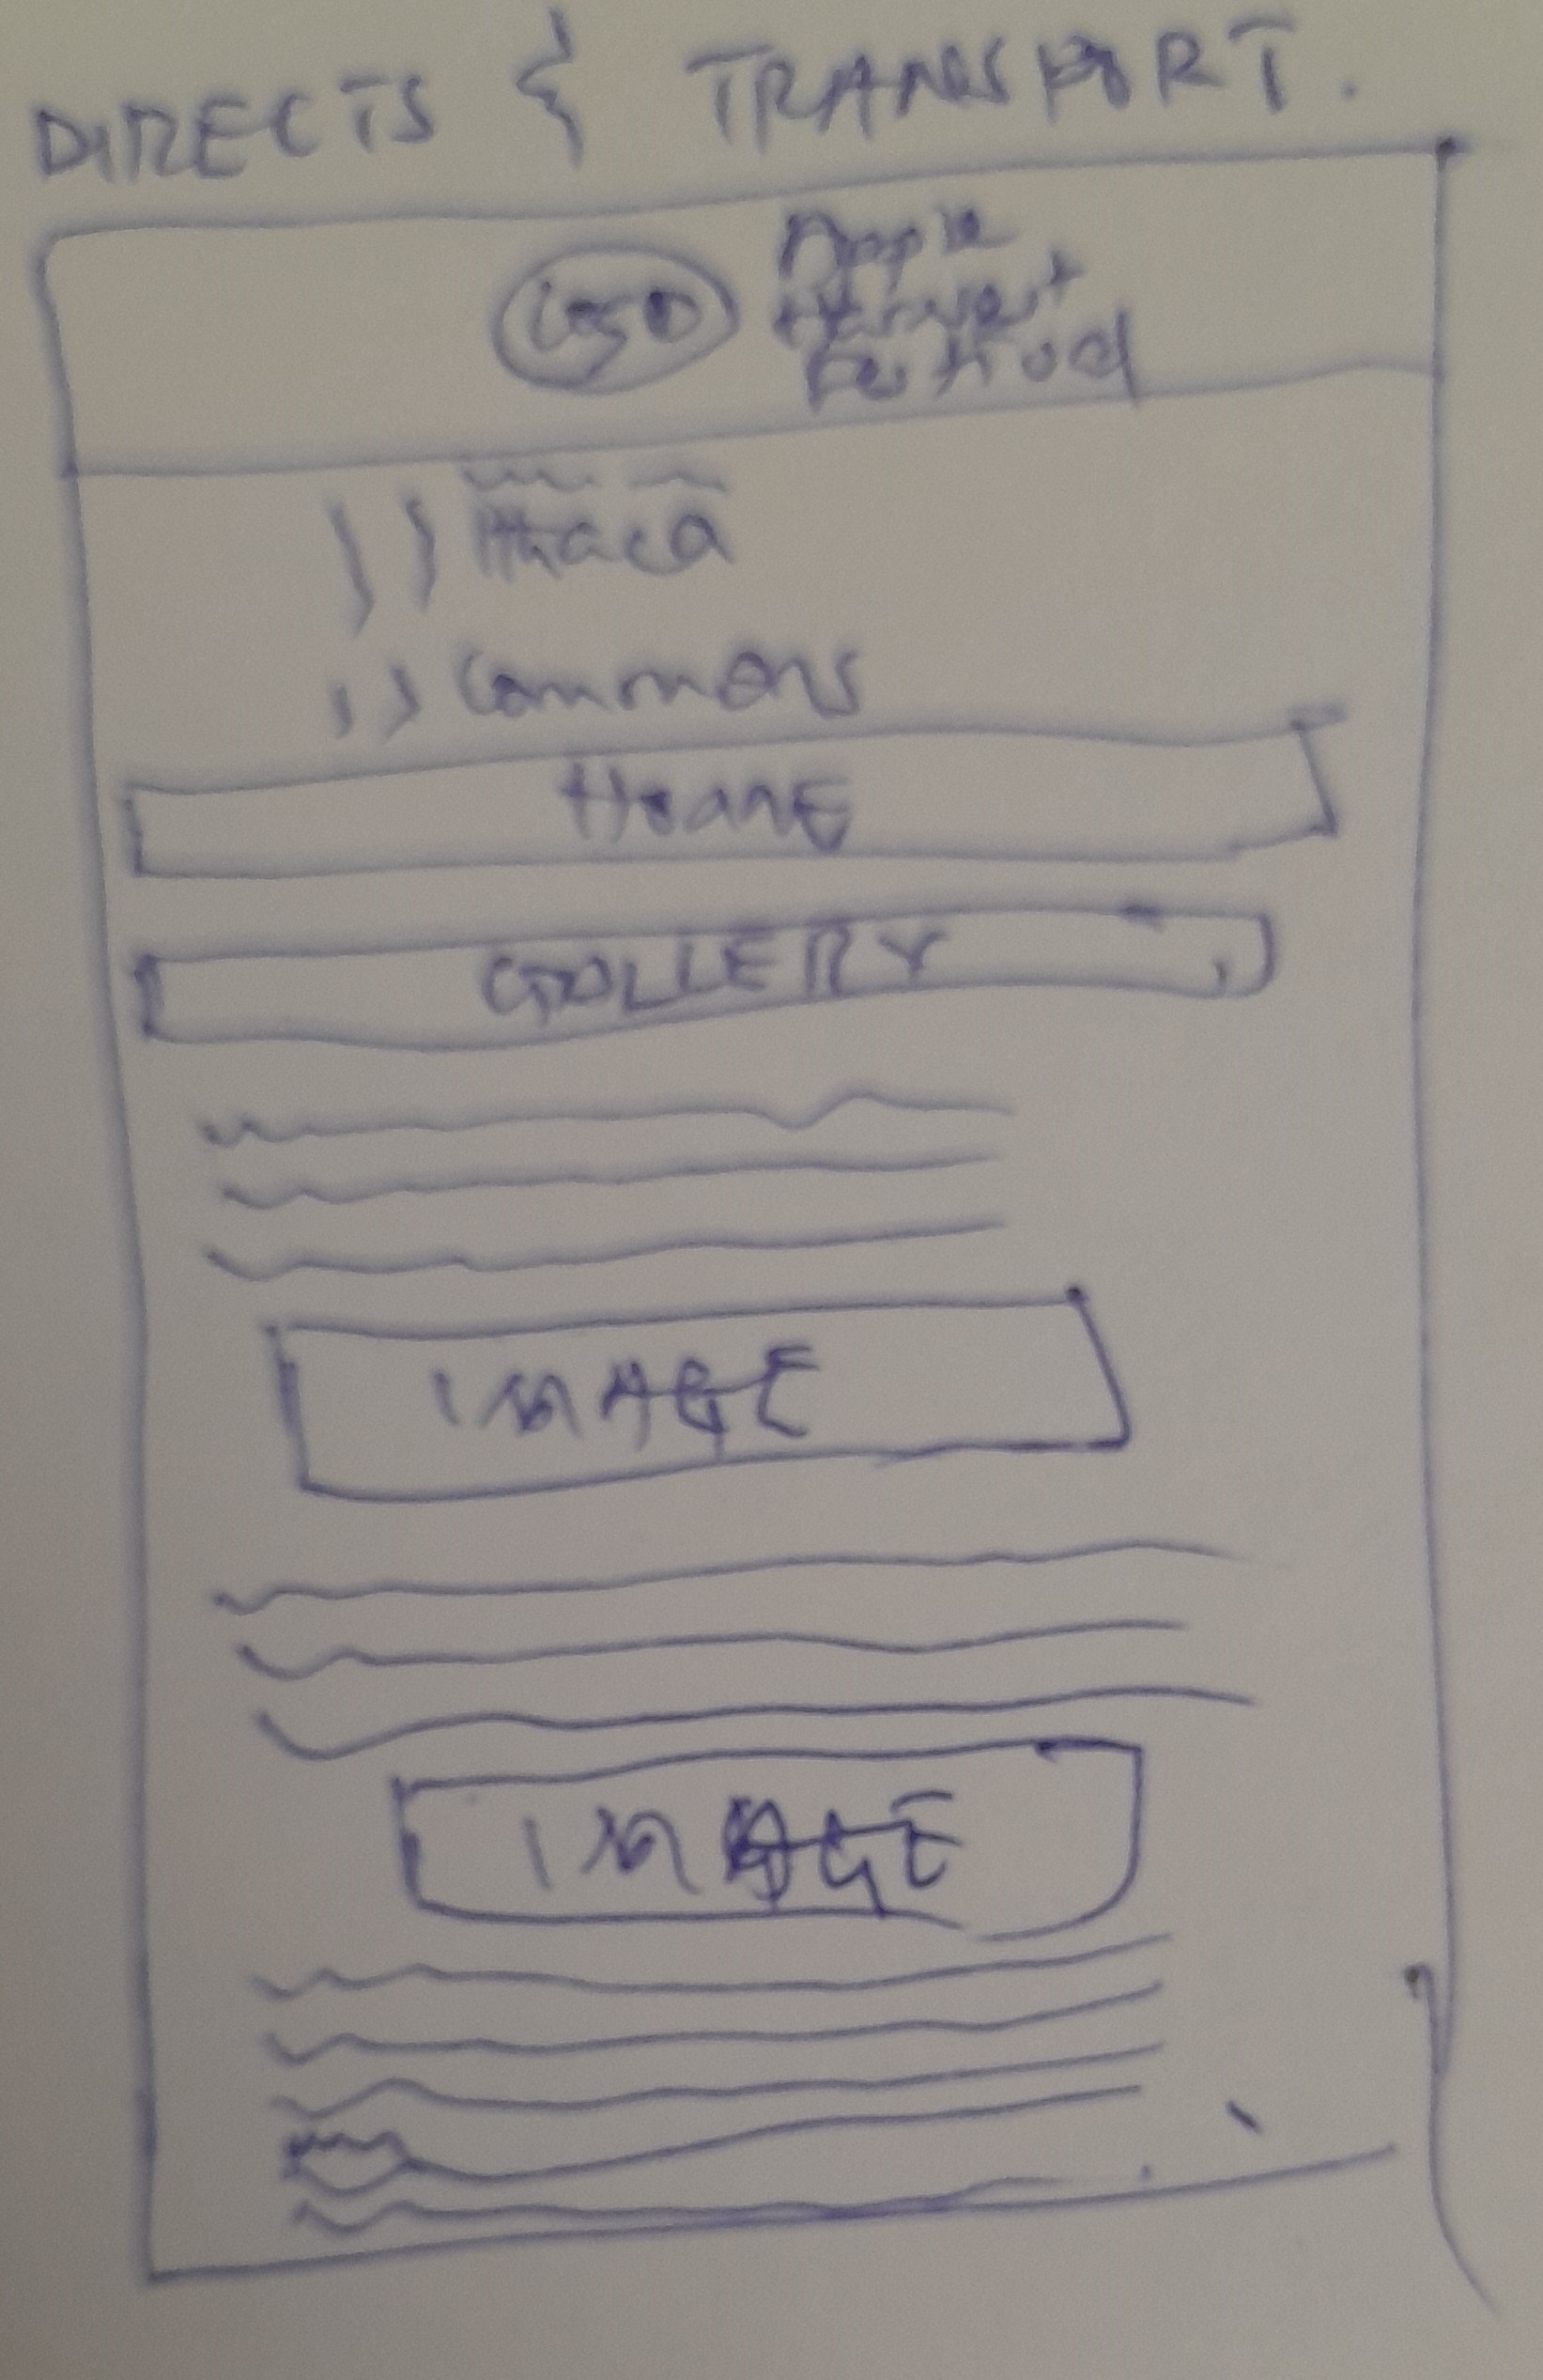 DIRECTS & TRANSPORT.
LOGO
Apple
Harvest
Festival
Ithaca
,, Commons
HOME
GALLERY
IMAGE
IMAGE